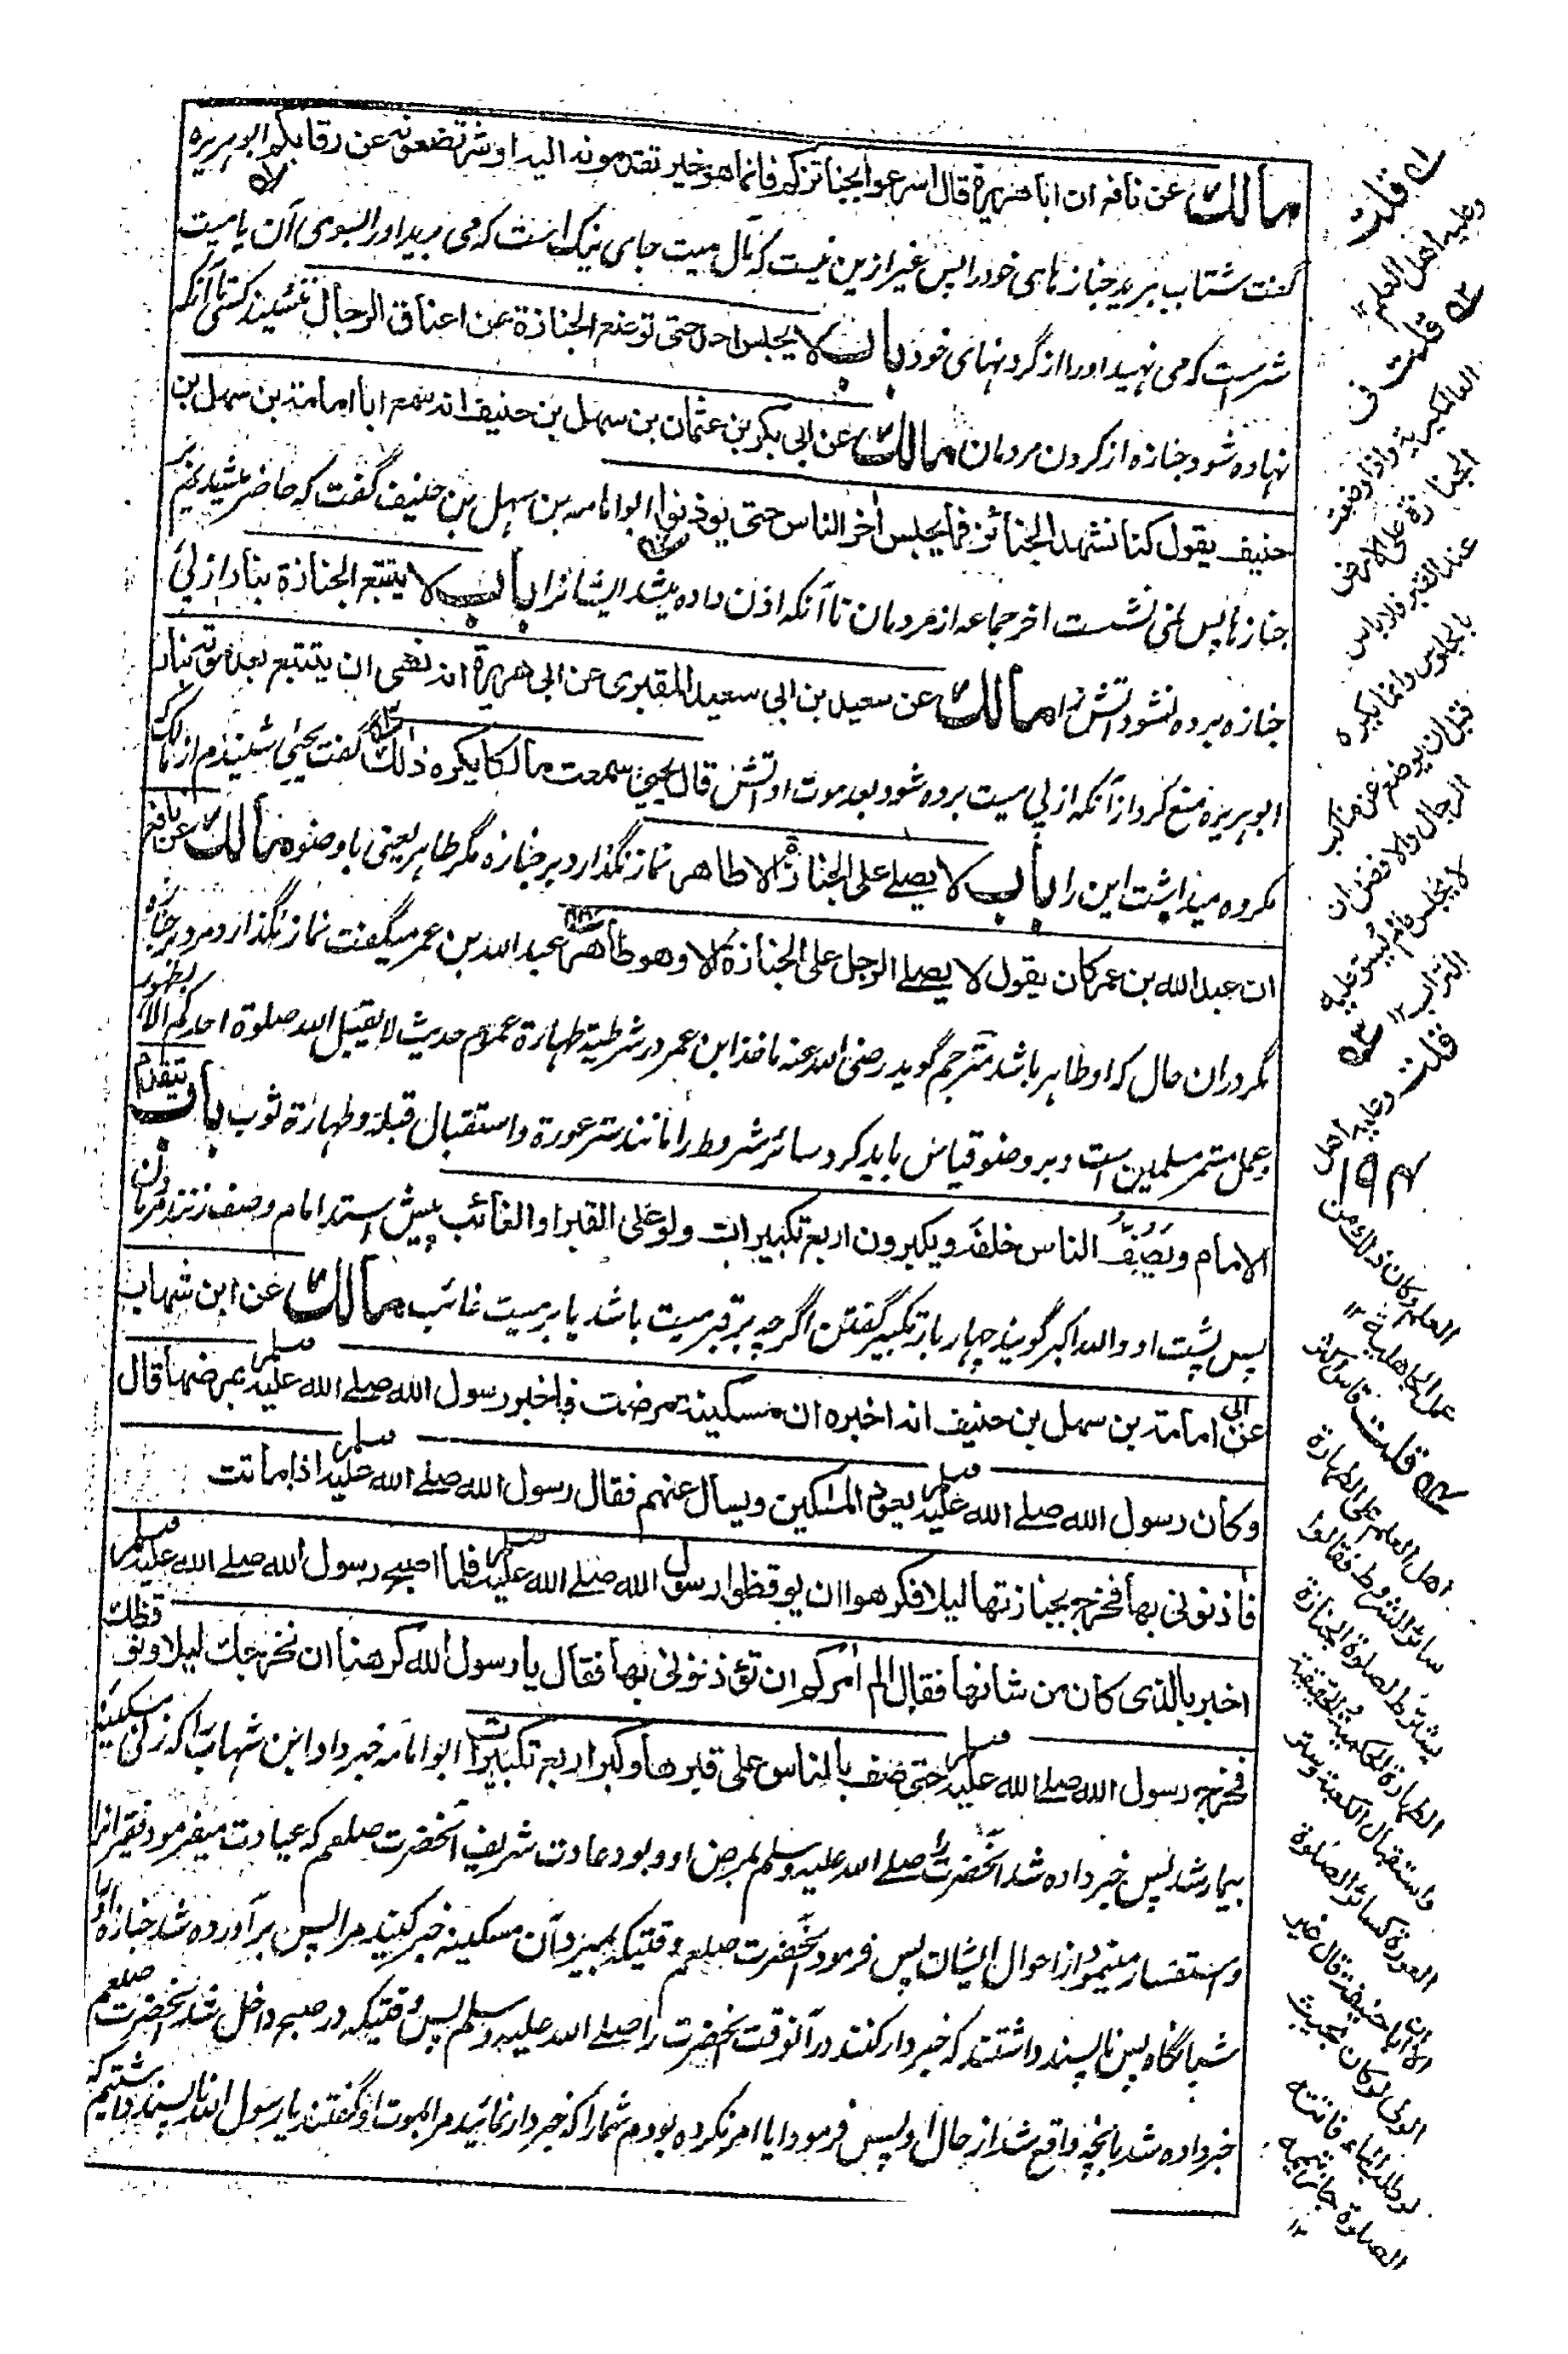 مالك عن نافع ان ابا هريرة قال اسرعوا بجنائزكم فانما هو خير تقدمونه اليه او شر تضعونه عن رقابكم ابو هريره
گفت شتاب ببريد جنازهاى خود را پس غير ازين نيست كه مآل ميت جاى نيك است كه مى بريد او را بسوى آن يا ميت
شر است كه مى نهيد او را از گردنهاى خود باب لا يجلس احد حتى توضع الجنازة عن اعناق الرجال ننشيند كسى تا آنكه
نهاده شود جنازه از گردن مردمان مالك عن ابى بكر بن عثمان بن سهل بن حنيف انه سمع ابا امامة بن سهل بن
حنيف يقول كنا نشهد الجنائز فما يجلس آخر الناس حتى يوذنوا ابو امامه بن سهل بن حنيف گفت كه حاضر ميشديم بر
جنازها پس نمى نشست آخر جماعه از مردمان تا آنكه اذن داده ميشد ايشانرا باب لا يتبع الجنازة بنار از پى
جنازه برده نشود آتش را مالك عن سعيد بن ابى سعيد المقبرى عن ابى هريرة انه نهى ان يتبع بعد موته بنار
ابو هريره منع كرد از آنكه از پى ميت برده شود بعد موت او آتش قال يحيى سمعت مالكا يكره ذلك گفت يحيى شنيدم از مالك كه
مكروه ميداشت اين را باب لا يصلے على الجنازة الا طاهر نماز نگذارد بر جنازه مگر طاهر يعنى با وضوء مالك عن نافع
ان عبد الله بن عمر كان يقول لا يصلے الرجل على الجنازة الا وهو طاهر عبد الله بن عمر ميگفت نماز نگذارد مرد بر جنازه
مگر دران حال كه او طاهر باشد مترجم گويد رضى الله عنه ماخذ ابن عمر در شرطية طهارة عموم حديث لا يقبل الله صلوة احدكم الا بطهور
وعمل مستمر مسلمين است و بر وضو قياس بايد كرد سائر شروط را مانند ستر عورة و استقبال قبلة و طهارة ثوب باب يتقدم
الامام ويصف الناس خلفه ويكبرون اربع تكبيرات ولو على القبر او الغائب پيش استد امام و صف زنند مردمان
پس پشت او و الله اكبر گويند چهار بار تكبير گفتن اگرچه بر قبر ميت باشد يا بر ميت غائب مالك عن ابن شهاب
عن ابى امامة بن سهل بن حنيف انه اخبره ان مسكينة مرضت فاخبر رسول الله صلے الله عليه وسلم بمرضها قال
وكان رسول الله صلے الله عليه وسلم يعود المساكين ويسأل عنهم فقال رسول الله صلے الله عليه وسلم اذا ماتت
فآذنونى بها فخرج بجنازتها ليلا فكرهوا ان يوقظوا رسول الله صلے الله عليه وسلم فلما اصبح رسول الله صلے الله عليه وسلم
اخبر بالذى كان من شانها فقال الم آمركم ان تؤذنونى بها فقال يا رسول الله كرهنا ان نخرجك ليلا ونوقظك
فخرج رسول الله صلے الله عليه وسلم حتى صف بالناس على قبرها وكبر اربع تكبيرات ابو امامه خبر داد ابن شهاب را كه زنى مسكينه
بيمار شد پس خبر داده شد آنحضرت را صلے الله عليه وسلم بمرض او و بود عادت شريف آنحضرت صلعم كه عيادت ميفرمود فقيرانرا
و استفسار مينمود از احوال ايشان پس فرمود آنحضرت صلعم وقتيكه بميرد آن مسكينه خبر كنيد مرا پس بر آورده شد جنازه او را
شبانگاه پس ناپسند داشتند كه خبردار كنند در آنوقت آنحضرت را صلے الله عليه وسلم پس وقتيكه در صبح داخل شد آنحضرت صلعم
خبر داده شد بآنچه واقع شد از حال او پس فرمود آيا امر نكرده بودم شما را كه خبردار نمائيد مرا بموت او گفتند يا رسول الله ناپسند داشتيم كه
قلت
وعليه اهل العلم ١٢
قلت فى
العالمگيرية واذا وضعت
الجنازة على الارض
عند القبر فلا باس
بالجلوس وانما يكره
قبل ان يوضع عن مناكب
الرجال والافضل ان
لا يجلس مالم يسو عليه
التراب ١٢
قلت وعليه اهل
١٩٢
العلم وكان ذلك من
عمل الجاهلية ١٢
قلت قاس
اهل العلم على الطهارة
سائر الشروط فقالوا
يشترط لصلوة الجنازة
الطهارة الحكمية والحقيقية
واستقبال الكعبة وستر
العورة كسائر الصلوة
الا ان ابا حنيفة قال غير
الولى لو كان بحيث
لو طلب الماء فاتته
الصلوة جاز تيممه ١٢